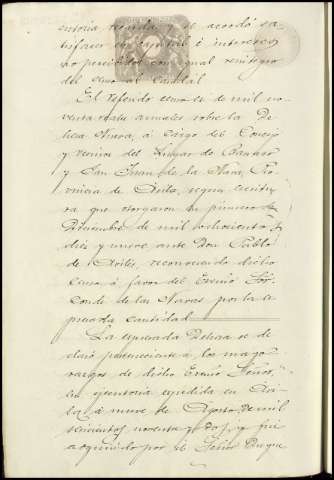 se acordó sa-
tisfacer el capital é intereses
no percibidos con igual reintegro
del censo al caudal.
El referido censo es de mil no-
venta reales anuales sobre la De-
hesa á cargo del Concejo
y vecinos del Lugar de
y San Juan de la Nava, Pro-
vincia de Avila, segun escritu-
ra que otorgaron en primero de
Diciembre de mil ochocientos
diez y nueve ante Don Pablo
de Avilés, reconociendo dicho
censo á favor del Excmo Sor.
Conde de las Navas por la ex-
presada cantidad.
La expresada Dehesa se de-
claró perteneciente á los mayo-
razgos de dicho Excmo Señor,
en ejecutoria expedida en
á nueve de Agosto de mil
seiscientos noventa y dos, y fué
adquirido por el Señor Duque